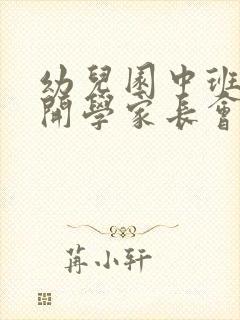 幼兒園中班
開學家長會
苒小轩